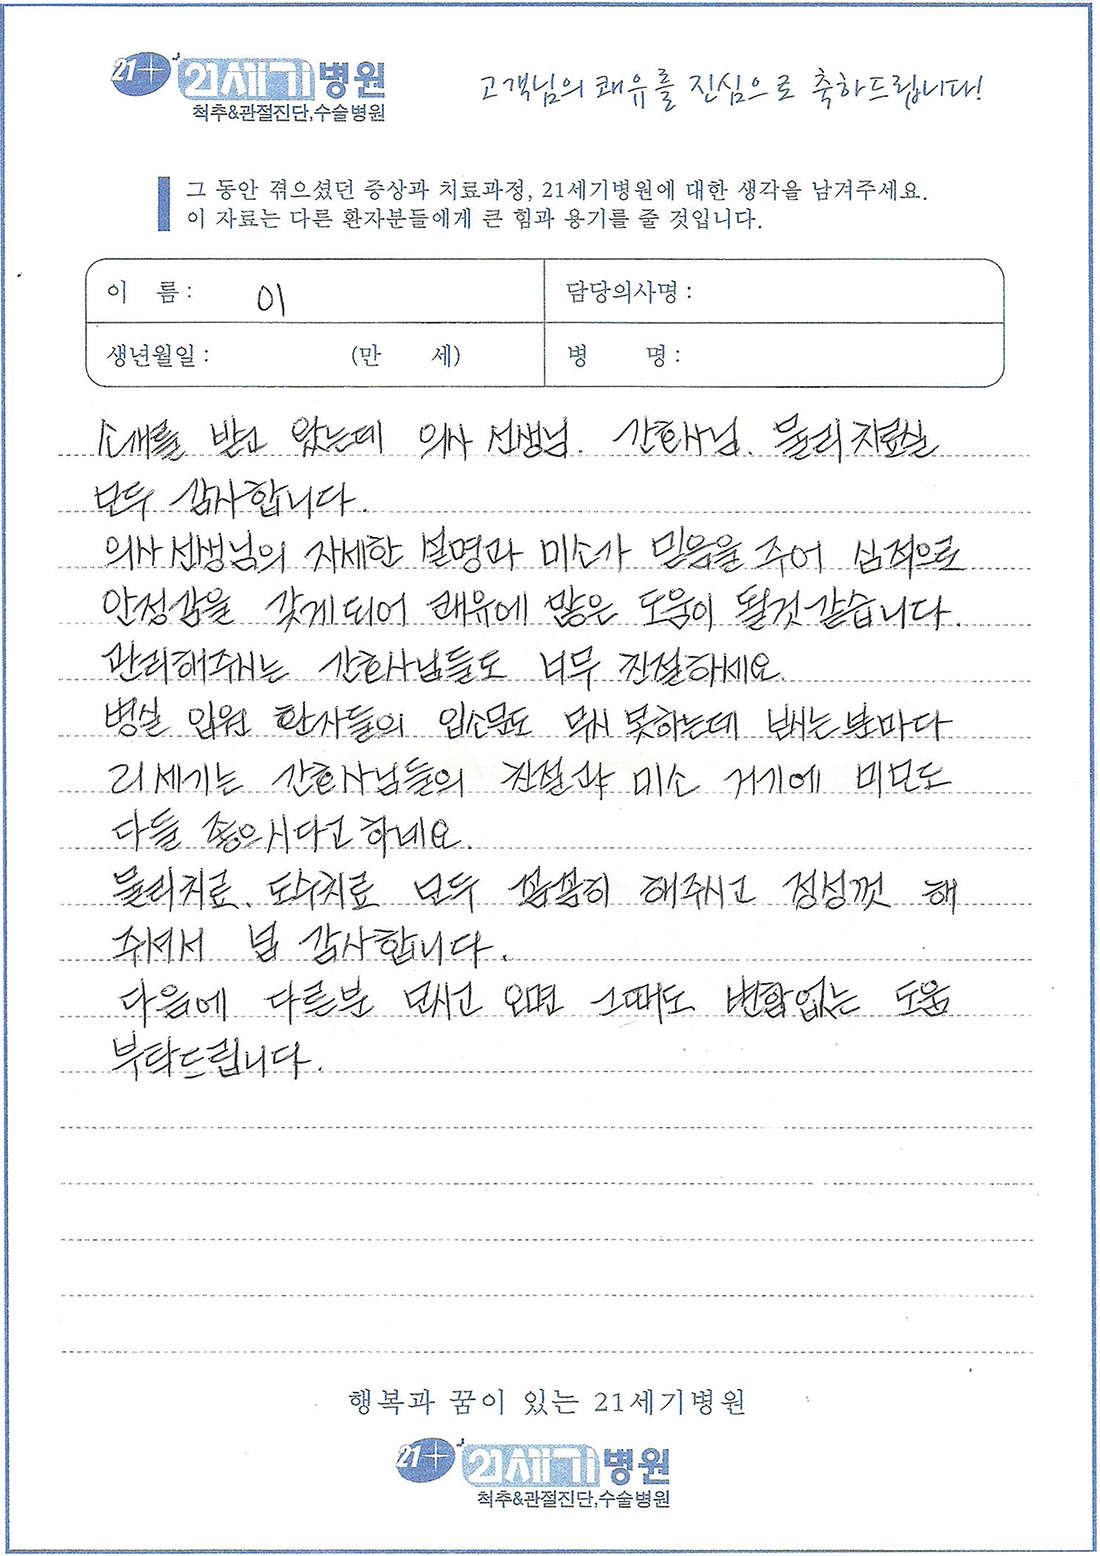 21 21세기병원
척추&관절진단,수술병원
고객님의 쾌유를 진심으로 축하드립니다!
그 동안 겪으셨던 증상과 치료과정, 21세기병원에 대한 생각을 남겨주세요.
이 자료는 다른 환자분들에게 큰 힘과 용기를 줄 것입니다.
이 름 : 이 담당의사명 :
생년월일 : (만 세) 병 명 :
소개를 받고 왔는데 의사 선생님. 간호사님. 물리치료실
모두 감사합니다.
의사 선생님의 자세한 설명과 미소가 믿음을 주어 심적으로
안정감을 갖게되어 쾌유에 많은 도움이 될것 같습니다.
관리해주시는 간호사님들도 너무 친절하세요
병실 입원 환자들의 입소문도 무시 못하는데 보시는분마다
21세기는 간호사님들의 친절과 미소 거기에 미모도
다들 좋으시다고 하네요.
물리치료. 도수치료 모두 꼼꼼히 해주시고 정성껏 해
주셔서 넘 감사합니다.
다음에 다른분 모시고 오면 그때도 변함없는 도움
부탁드립니다.
행복과 꿈이 있는 21세기병원
21 21세기병원
척추&관절진단,수술병원